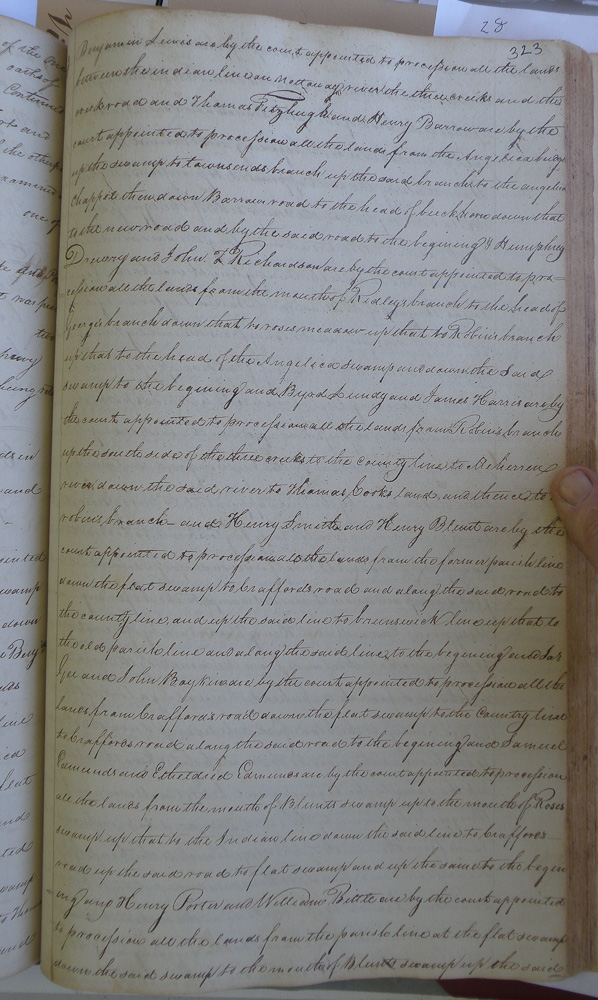 28
323
Benjamin Lewis are by the court appointed to procession all the lands
between the indian line on Nottoway river the three creeks and the
road and Thomas Fitzhugh and Henry Barrow are by the
court appointed to procession all the lands from the Angelica bridge
up the swamp to townsends branch up the said branch to the angelica
chappel then down Barrow road to the head of buckhorn down that
to the new road and by the said road to the begining & Humphrey
Drewry and John T Richardson are by the court appointed to pro=
cession all the lands from the mouth of Ridleys branch to the head of
Georges branch down that to roses meadow up that to Robins branch
up that to the head of the Angelica swamp and down the said
swamp to the begining and Byrd Lundy and James Harris are by
the court appointed to procession all the lands from Robins branch
up the south side of the three creeks to the county line to Meherren
river down the said river to Thomas Cooks land and thence to
robins branch and Henry Smith and Henry Blunt are by the
court appointed to procession all the lands from the former parish line
down the flat swamp to braffords road and along the said road to
the county line, and up the said line to brunswick line up that to
the old parish line and along the said line to the begining and
and John Boykin are by the court appointed to procession all the
lands from braffords road down the flat swamp to the Country line
to braffords road along the said road to the begining and Samuel
Edmunds and Etheldred Edmunds are by the court appointed to procession
all the lands from the mouth of Blunts swamp up to the mouth of Roses
swamp up that to the Indian line down the said line to braffords
road up the said road to flat swamp and up the same to the begin
ing and Henry Porter and William Bittle are by the court appointed
to procession all the lands from the parish line at the flat swamp
down the said swamp to the mouth of Blunts swamp up the said